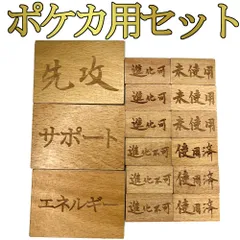 ポケカ用セット
先攻
サポート
エネルギー
進化可 未使用
進化可 未使用
進化可 未使用
進化不可 使用済
進化不可 使用済
進化不可 使用済